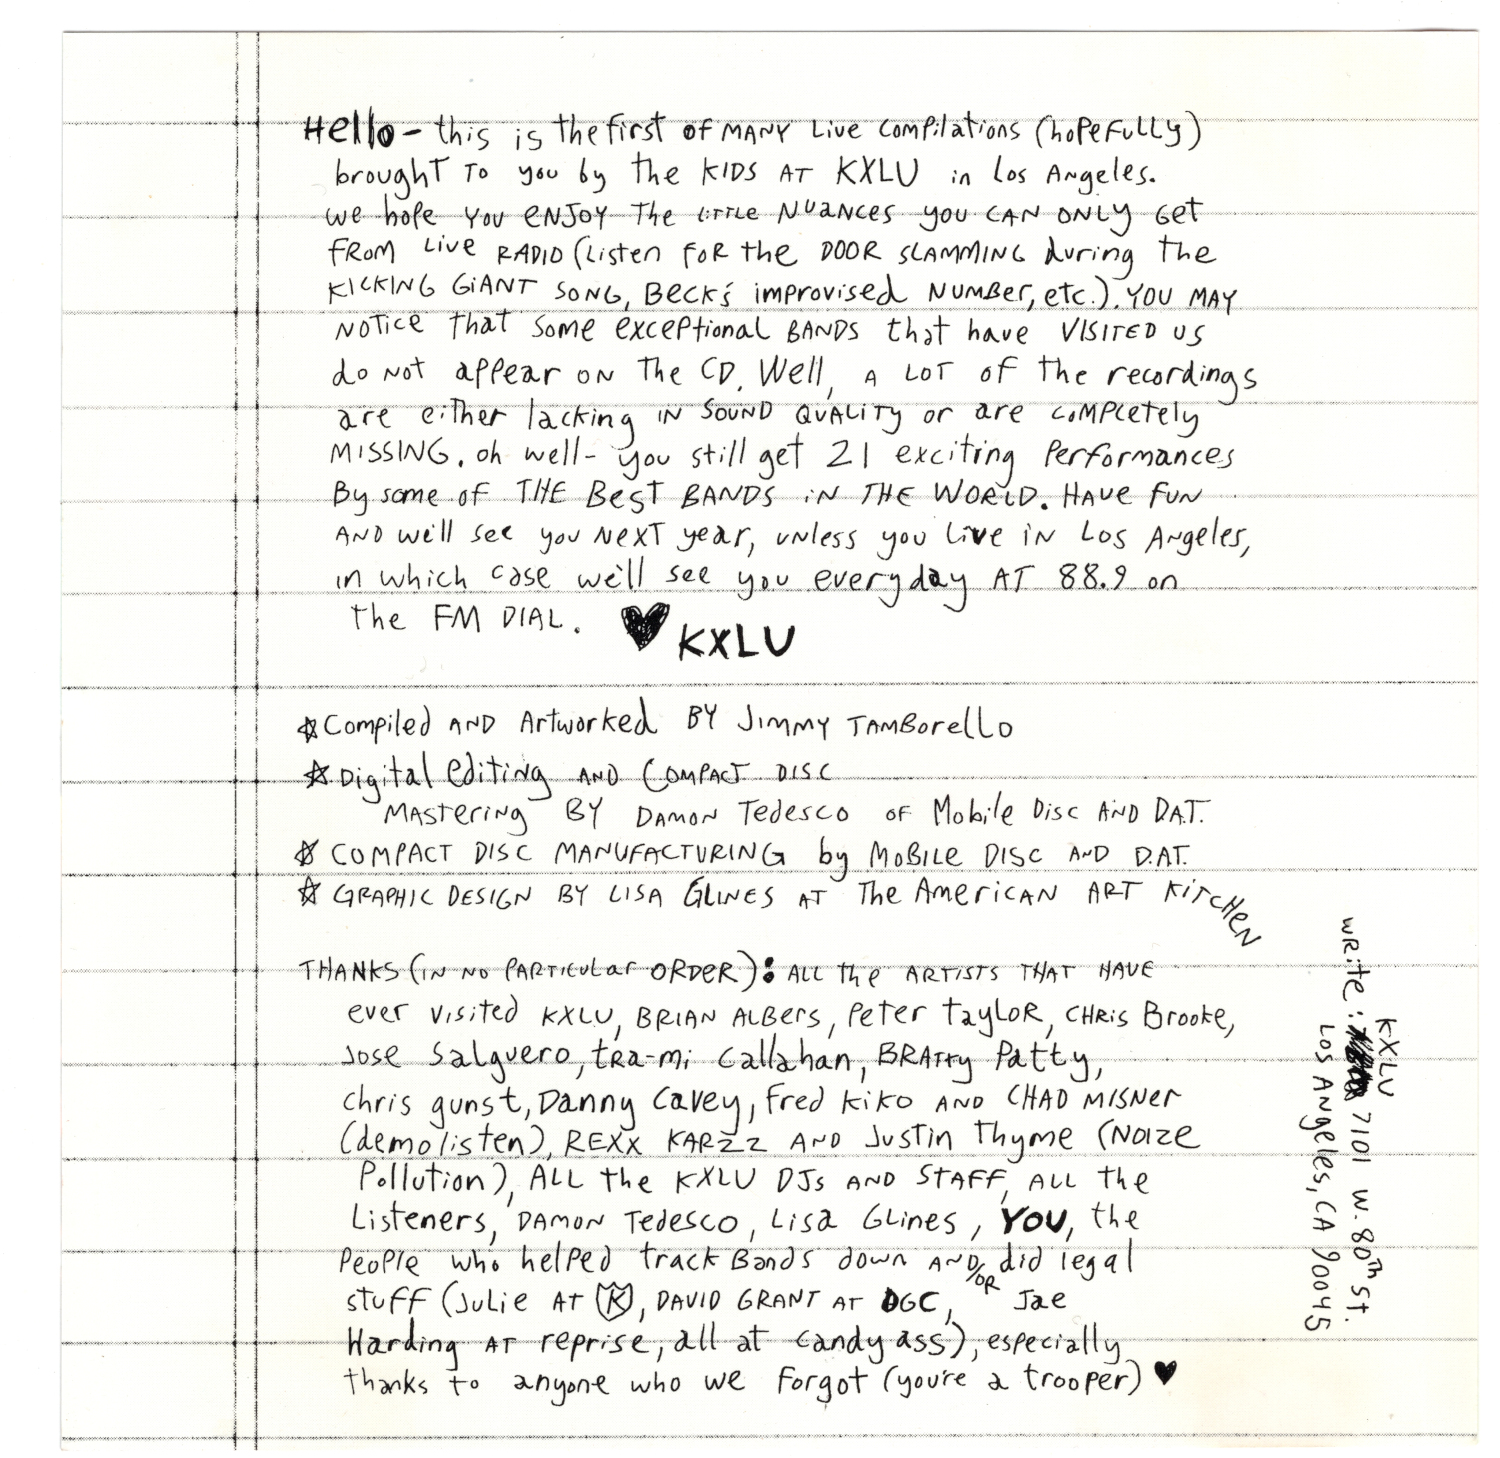 Hello - this is the first of MANY Live Compilations (hopefully)
brought to you by the KIDS AT KXLU in Los Angeles.
We hope you ENJOY the little NUANCES you CAN ONLY Get
FROM Live RADIO (Listen FOR the DOOR SLAMMING during the
KICKING GIANT SONG, BECK's improvised NUMBER, etc.). YOU MAY
NOTICE that some exceptional BANDS that have VISITED US
do NOT appear ON the CD. Well, A LOT of the recordings
are either lacking IN SOUND QUALITY or are completely
MISSING. oh well - you still get 21 exciting Performances
By some of THE BEST BANDS IN THE WORLD. HAVE FUN
AND we'll see you NEXT year, unless you Live IN Los Angeles,
in which case we'll see you everyday AT 88.9 on
the FM DIAL. ♥ KXLU
☆ Compiled AND Artworked BY Jimmy TAMBorello
☆ Digital editing AND COMPACT DISC
MAStering BY DAMON Tedesco OF Mobile Disc AND D.A.T.
☆ COMPACT DISC MANUFACTURING by MOBILE DISC AND D.A.T.
☆ GRAPHIC DESIGN BY LISA GLINES AT The American ART KITCHEN
THANKS (IN NO PARTICULar ORDER): ALL the ARTISTS THAT HAVE
ever visited KXLU, BRIAN ALBers, Peter Taylor, CHRIS Brooke,
Jose Salguero, tra-mi Callahan, BRAtty Patty,
Chris gunst, Danny Cavey, Fred KIKO AND CHAD MISNer
(demolisten), REXX KARZZ AND Justin Thyme (NOIZE
Pollution), ALL the KXLU DJs AND STAFF, ALL the
Listeners, DAMON Tedesco, Lisa Glines, YOU, the
People who helped track Bands down AND/OR did legal
stuff (Julie AT K, DAVID GRANT AT DGC, Jae
Harding AT reprise, all at Candy ass), especially
thanks to anyone who we Forgot (you're a trooper) ♥
KXLU
WRite: 7101 W. 80th St.
Los Angeles, CA 90045